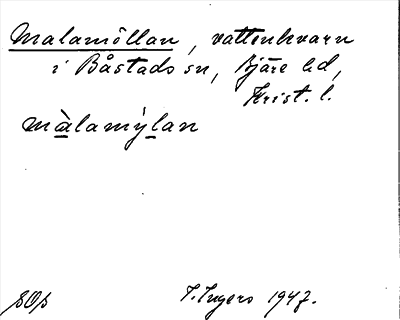 Malamöllan, vattenkvarn
i Båstads sn, Bjäre hd,
Krist. l.
màlamýlan
I. Ingers 1947.